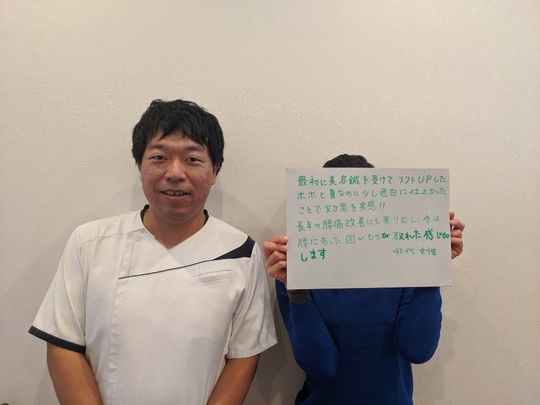 最初に美容鍼を受けて リフトUPした
ホホと夏なのに少し色白に仕上がった
ことで効果を実感!!
長年の腰痛改善にも乗り出し、今は
腰にあった固いものが取れた感じが
します
40代 女性